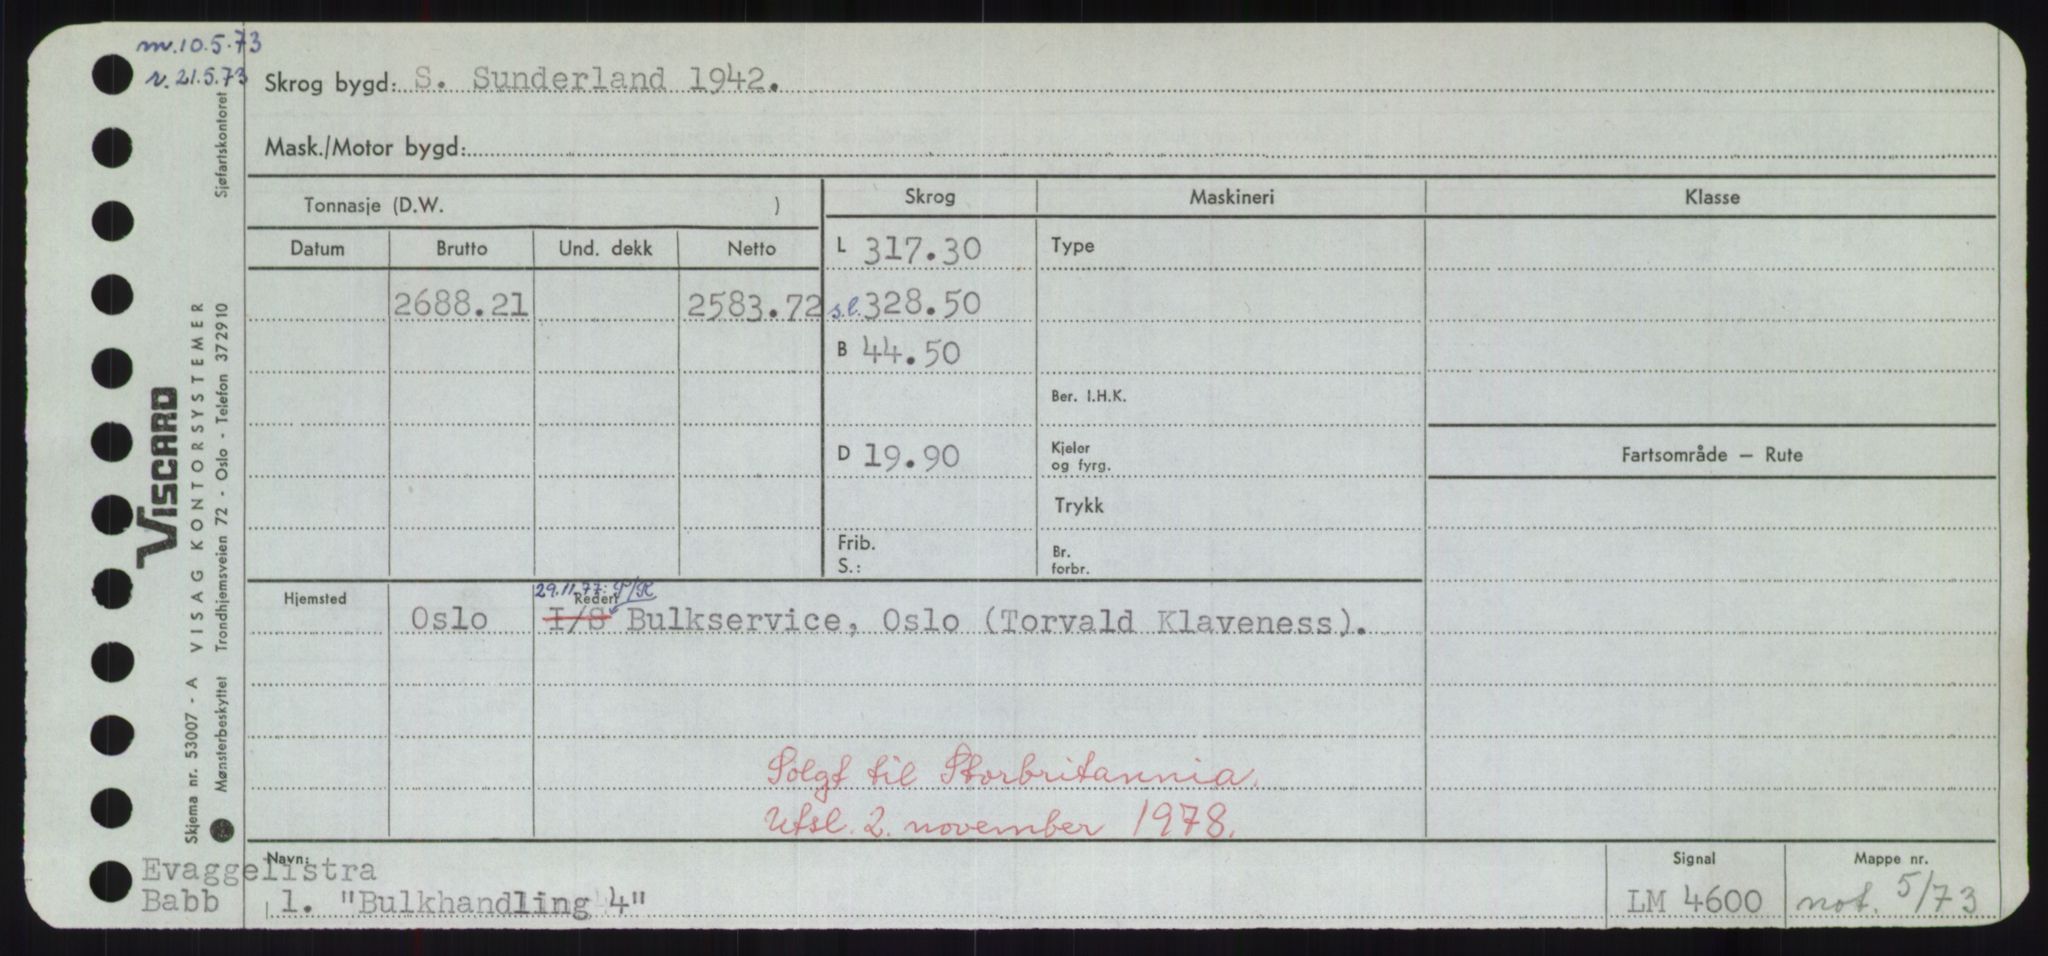 m. 10.5.73
r. 21.5.73
Skrog bygd: S. Sunderland 1942.
Mask./Motor bygd:
Tonnasje (D.W. )
Skrog
Maskineri
Klasse
Datum Brutto Und. dekk Netto
L 317.30
Type
2688.21 2583.72
s.l. 328.50
B 44.50
Ber. I.H.K.
D 19.90
Kjeler
og fyrg.
Fartsområde — Rute
Trykk
Frib.
S.:
Br.
forbr.
29.11.77: P/R
Hjemsted
Rederi
Oslo I/S Bulkservice, Oslo (Torvald Klaveness).
Solgt til Storbritannia.
Utsl. 2. november 1978.
Navn:
Signal
Mappe nr.
Evaggelistra
Babb 1. "Bulkhandling 4"
LM 4600
not. 5/73
Sjøfartskontoret
VISCARD
VISAG KONTORSYSTEMER
Skjema nr. 53007 - A
Mønsterbeskyttet Trondhjemsveien 72 - Oslo - Telefon 372910